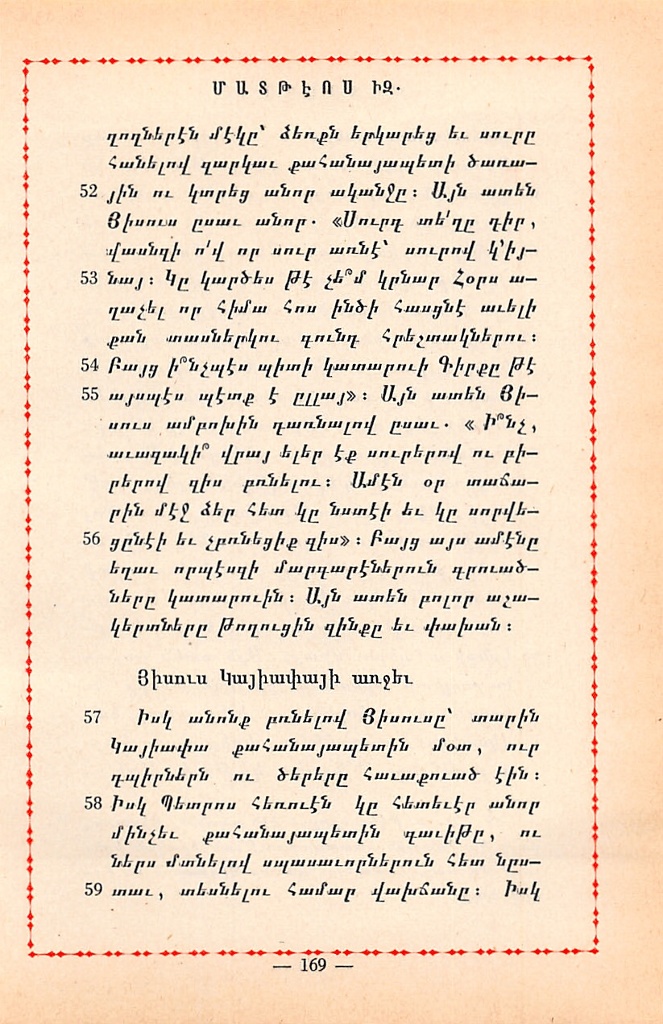 ՄԱՏԹԷՈՍ ԻԶ․
ղողներէն մէկը՝ ձեռքն երկարեց եւ սուրը
հանելով զարկաւ քահանայապետի ծառա—
52 յին ու կտրեց անոր ականջը։ Այն ատեն
Յիսուս ըսաւ անոր․ «Սուրդ տե՛ղը դիր,
վասնզի ո՛վ որ սուր առնէ՝ սուրով կ՚իյ—
53 նայ։ Կը կարծես թէ չե՞մ կրնար Հօրս ա—
ղաչել որ հիմա հոս ինծի հասցնէ աւելի
քան տասներկու գունդ հրեշտակներու։
54 Բայց ի՞նչպէս պիտի կատարուի Գիրքը թէ
55 այսպէս պէտք է ըլլայ»։ Այն ատեն Յի—
սուս ամբոխին դառնալով ըսաւ․ «Ի՞նչ,
աւազակի՞ վրայ ելեր էք սուրերով ու բի—
րերով զիս բռնելու։ Ամէն օր տաճա—
րին մէջ ձեր հետ կը նստէի եւ կը սորվե—
56 ցընէի եւ չբռնեցիք զիս»։ Բայց այս ամէնը
եղաւ որպէսզի մարդարէներուն գրուած—
ները կատարուին։ Այն ատեն բոլոր աշա—
կերտները թողուցին զինքը եւ փախան։
Յիսուս Կայիափայի առջեւ
57 Իսկ անոնք բռնելով Յիսուսը՝ տարին
Կայիափա քահանայապետին մօտ, ուր
դպիրներն ու ծերերը հաւաքուած էին։
58 Իսկ Պետրոս հեռուէն կը հետեւէր անոր
մինչեւ քահանայապետին գաւիթը, ու
ներս մտնելով սպասաւորներուն հետ նըս—
59 տաւ, տեսնելու համար վախճանը։ Իսկ
— 169 —